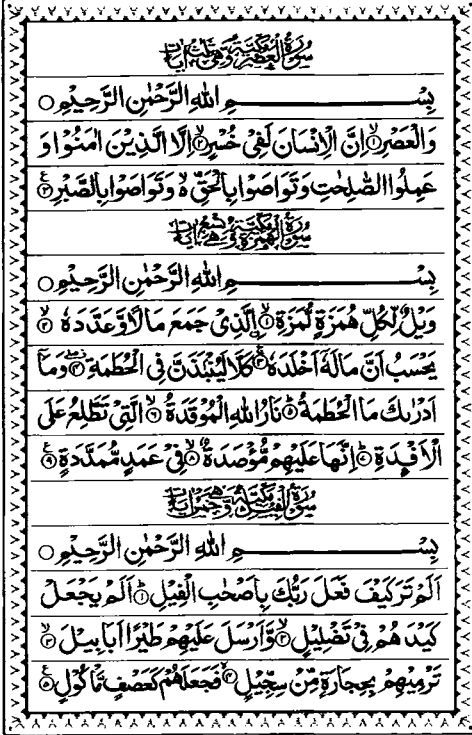 سُوْرَةُ الْعَصْرِ مَكِّيَّةٌ وَّهِيَ ثَلٰثُ اٰيَاتٍ
بِسْمِ اللهِ الرَّحْمٰنِ الرَّحِيْمِ ○
وَالْعَصْرِ ۙ﴿۱﴾ اِنَّ الْاِنْسَانَ لَفِيْ خُسْرٍ ۙ﴿۲﴾ اِلَّا الَّذِيْنَ اٰمَنُوْا وَ
عَمِلُوا الصّٰلِحٰتِ وَتَوَاصَوْا بِالْحَقِّ ۙ۬ وَتَوَاصَوْا بِالصَّبْرِ ﴿۳﴾
سُوْرَةُ الْهُمَزَةِ مَكِّيَّةٌ وَّهِيَ تِسْعُ اٰيَاتٍ
بِسْمِ اللهِ الرَّحْمٰنِ الرَّحِيْمِ ○
وَيْلٌ لِّكُلِّ هُمَزَةٍ لُّمَزَةٍ ۙ﴿۱﴾ الَّذِيْ جَمَعَ مَالًا وَّعَدَّدَهٗ ۙ﴿۲﴾
يَحْسَبُ اَنَّ مَالَهٗٓ اَخْلَدَهٗ ۚ﴿۳﴾ كَلَّا لَيُنْۢبَذَنَّ فِي الْحُطَمَةِ ﴿۴﴾ وَمَآ
اَدْرٰىكَ مَا الْحُطَمَةُ ؕ﴿۵﴾ نَارُ اللهِ الْمُوْقَدَةُ ۙ﴿۶﴾ الَّتِيْ تَطَّلِعُ عَلَى
الْاَفْـِٕدَةِ ؕ﴿۷﴾ اِنَّهَا عَلَيْهِمْ مُّؤْصَدَةٌ ۙ﴿۸﴾ فِيْ عَمَدٍ مُّمَدَّدَةٍ ﴿۹﴾
سُوْرَةُ الْفِيْلِ مَكِّيَّةٌ وَّهِيَ خَمْسُ اٰيَاتٍ
بِسْمِ اللهِ الرَّحْمٰنِ الرَّحِيْمِ ○
اَلَمْ تَرَ كَيْفَ فَعَلَ رَبُّكَ بِاَصْحٰبِ الْفِيْلِ ؕ﴿۱﴾ اَلَمْ يَجْعَلْ
كَيْدَهُمْ فِيْ تَضْلِيْلٍ ۙ﴿۲﴾ وَّاَرْسَلَ عَلَيْهِمْ طَيْرًا اَبَابِيْلَ ۙ﴿۳﴾
تَرْمِيْهِمْ بِحِجَارَةٍ مِّنْ سِجِّيْلٍ ۙ﴿۴﴾ فَجَعَلَهُمْ كَعَصْفٍ مَّاْكُوْلٍ ﴿۵﴾